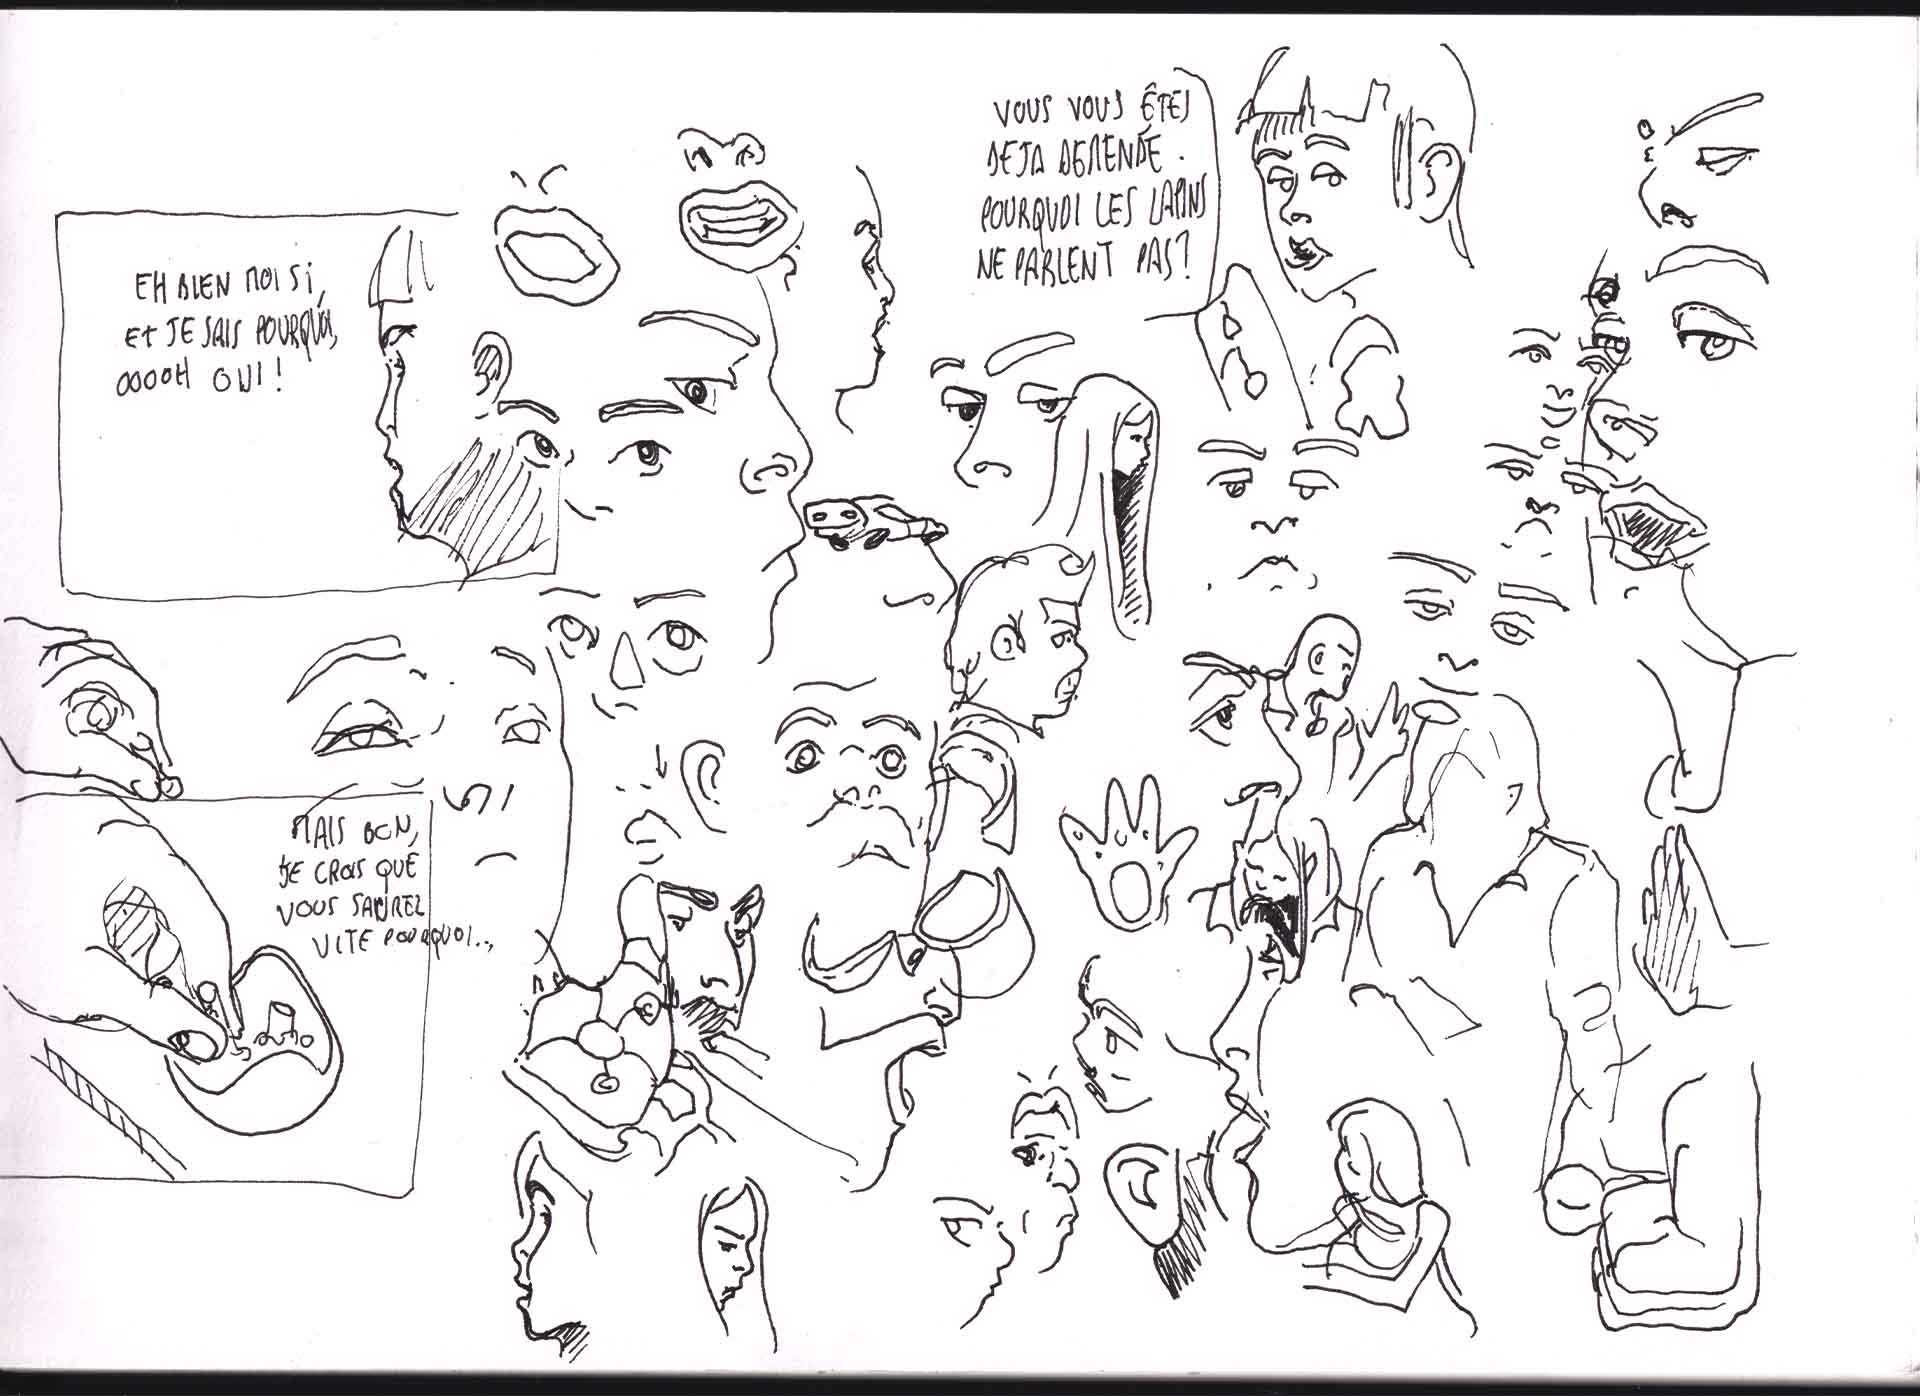 VOUS VOUS ÊTES
DEJA DEMENDÉ.
POURQUOI LES LAPINS
NE PARLENT PAS?
EH BIEN MOI SI,
ET JE SAIS POURQUOI,
OOOOH OUI!
MAIS BON,
JE CROIS QUE
VOUS SAUREZ
VITE POURQUOI...